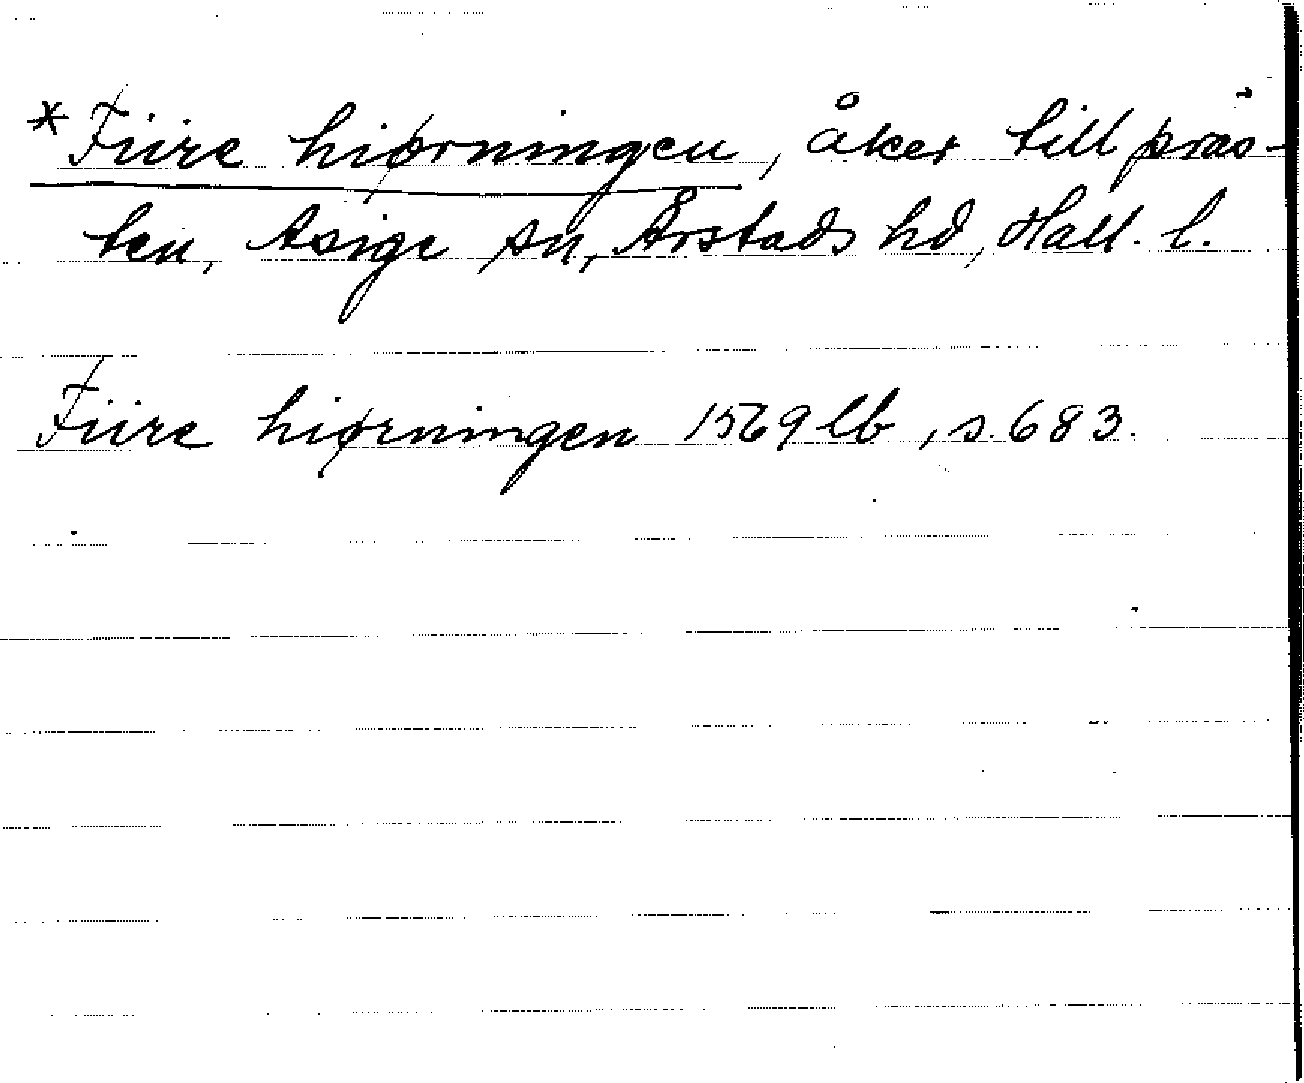 *Fiire hiørningen, åker till präs-
ten, Asige sn, Årstads hd, Hall. l.
Fiire hiørningen 1569 lb, s. 683.